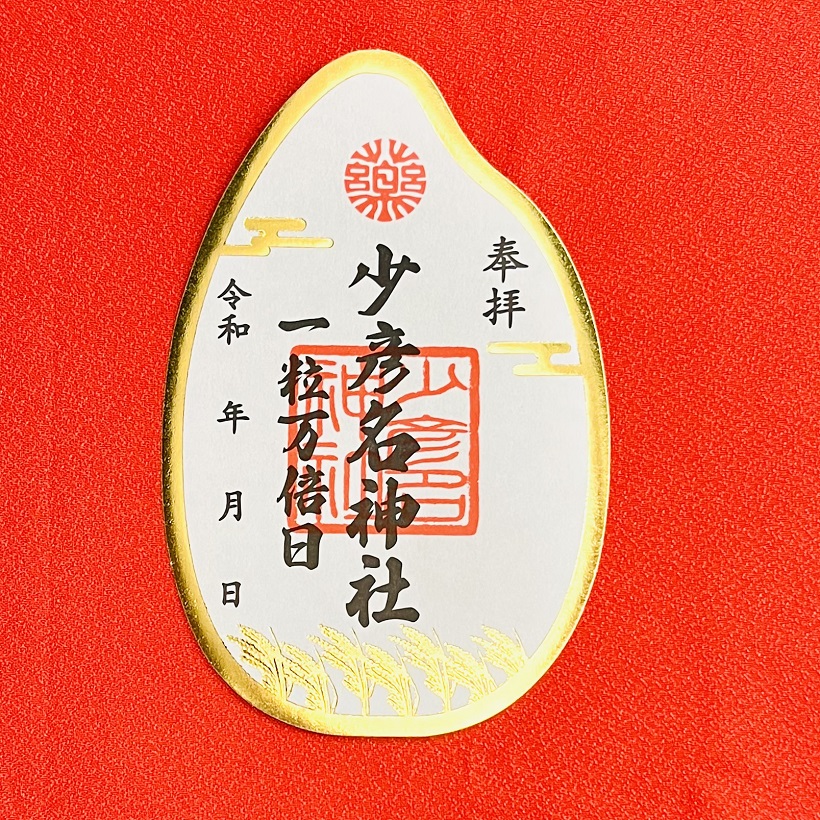 奉拝
藥
少彦名神社
少彦名
神社
一粒万倍日
令和 年 月 日